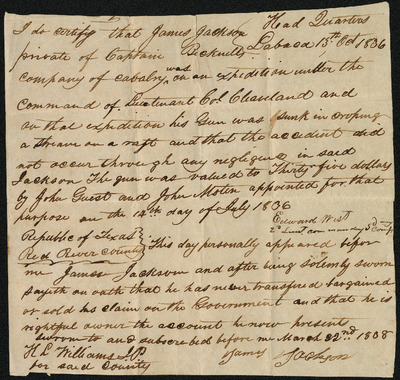 Head Quarters
I do certify that James Jackson Labaca 13th Oct 1836
private of Captain Becknells
company of cavalry was on an expedition under the
command of Lieutenant Col Cleaveland and
on that expedition his Gun was sunk in croping
a stream on a raft and that the accident did
not occur through any negligence in said
Jackson The gun was valued to Thirty five dollars
by John Guest and John Moten appointed for that
purpose on the 14th day of July 1836
Edward West
2d Lieut com
Republic of Texas
Red River County } This day personally appeared before
me James Jackson and after being solemly sworn
sayeth on oath that he has never transfured bargained
or sold his claim on the Government and that he is
rightful owner the account he now present
sworn to and subscrebed before me March 22nd 1838
H L Williams J.P. James Jackson
for said county